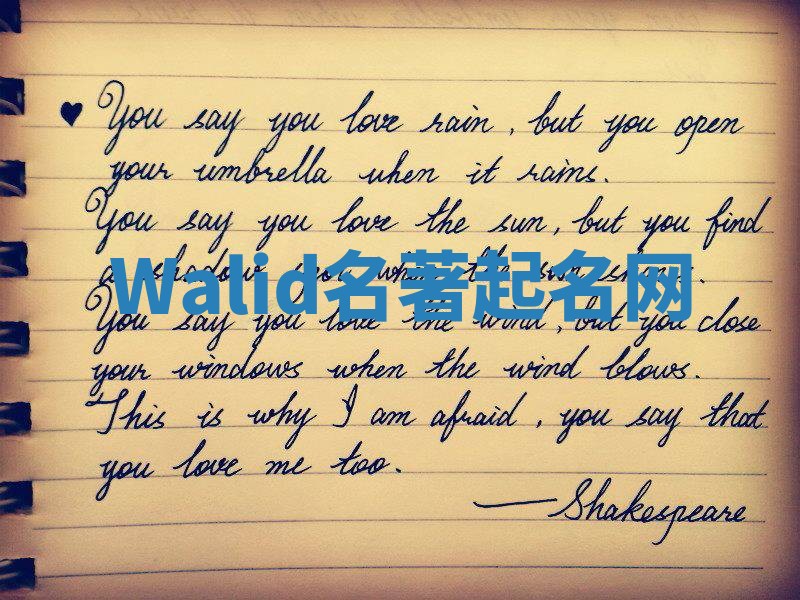 ♥ You say you love rain, but you open
your umbrella when it rains.
You say you love the sun, but you find
a shadow spot when the sun shines.
Walid名著起名网
You say you love the wind, but you close
your windows when the wind blows.
This is why I am afraid, you say that
you love me too.
— Shakespeare